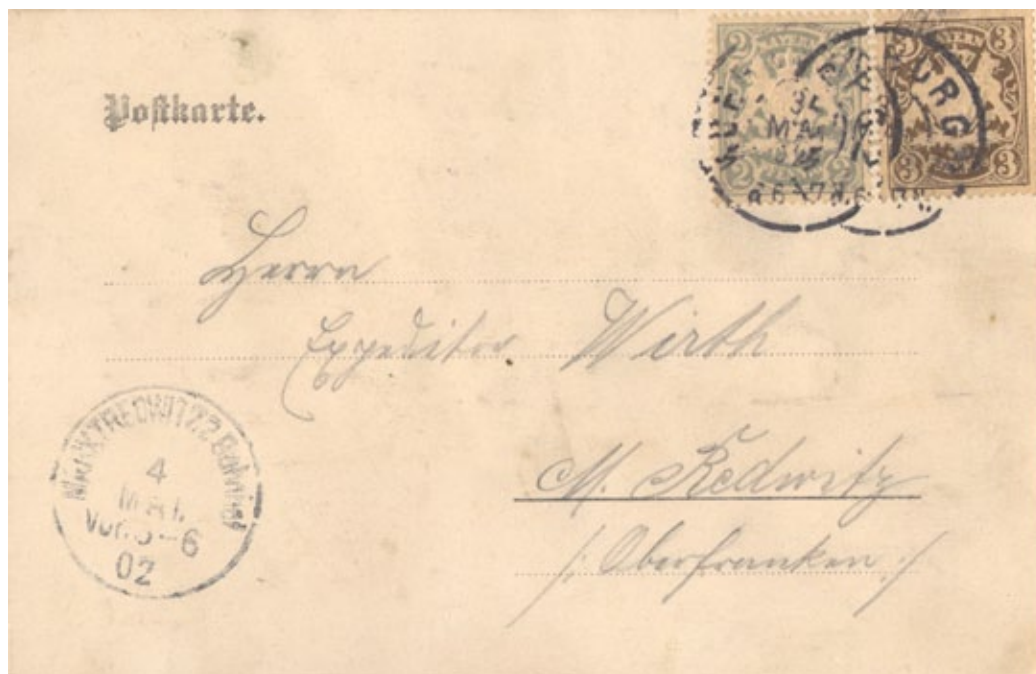 Postkarte.
2 2
2 2
3 3
3 3
BURG
MAI
Herrn
Expeditor Wirth
M. Redwitz
/: Oberfranken :/
MARKTREDWITZ 2. Bahnhof
4
MAI.
Vor. 5-6
02